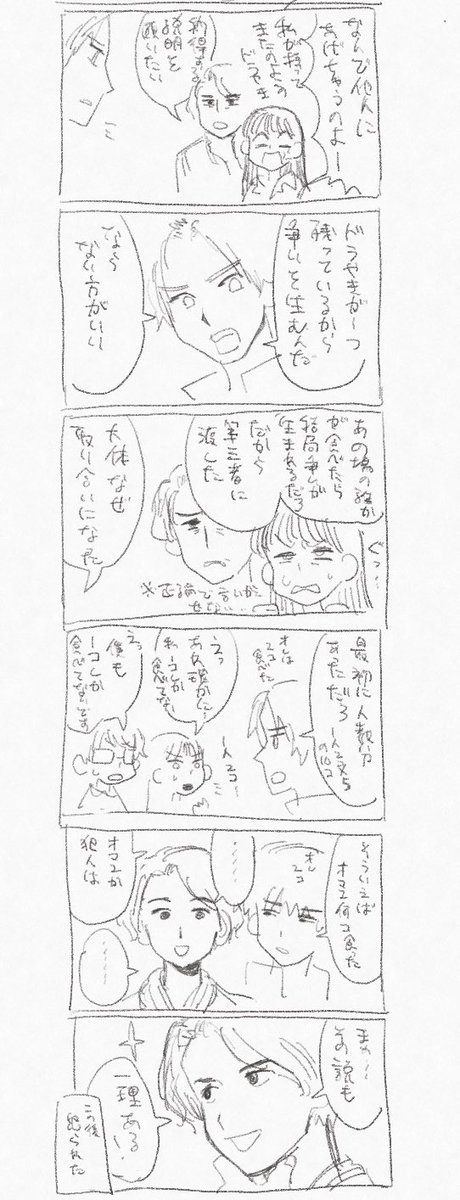 なんで他人に
あげちゃうのよー
私が持って
きたのよこの
ドラやき
納得する
説明を
願いたい
ドラやきが一つ
残っているから
争いを生むんだ
なら
ない方がいい
あの場の誰か
が食べたら
結局争いが
生まれるだろ
だから
第三者に
渡した
ぐっ…
大体なぜ
取り合いになった
※正論で言いかえ
せない…
最初に人数分
あっただろ
オレは
2コ
食べた
えっ
あれ確かに…
私一コしか
食べてない
一人2コ…
えっ
僕も
一コしか
食べてないです
そういえば
オマエ何コ食った
オレ
2コ
……
オマエか
犯人は
……
まぁ…
その説も
一理ある!
この後
怒られた